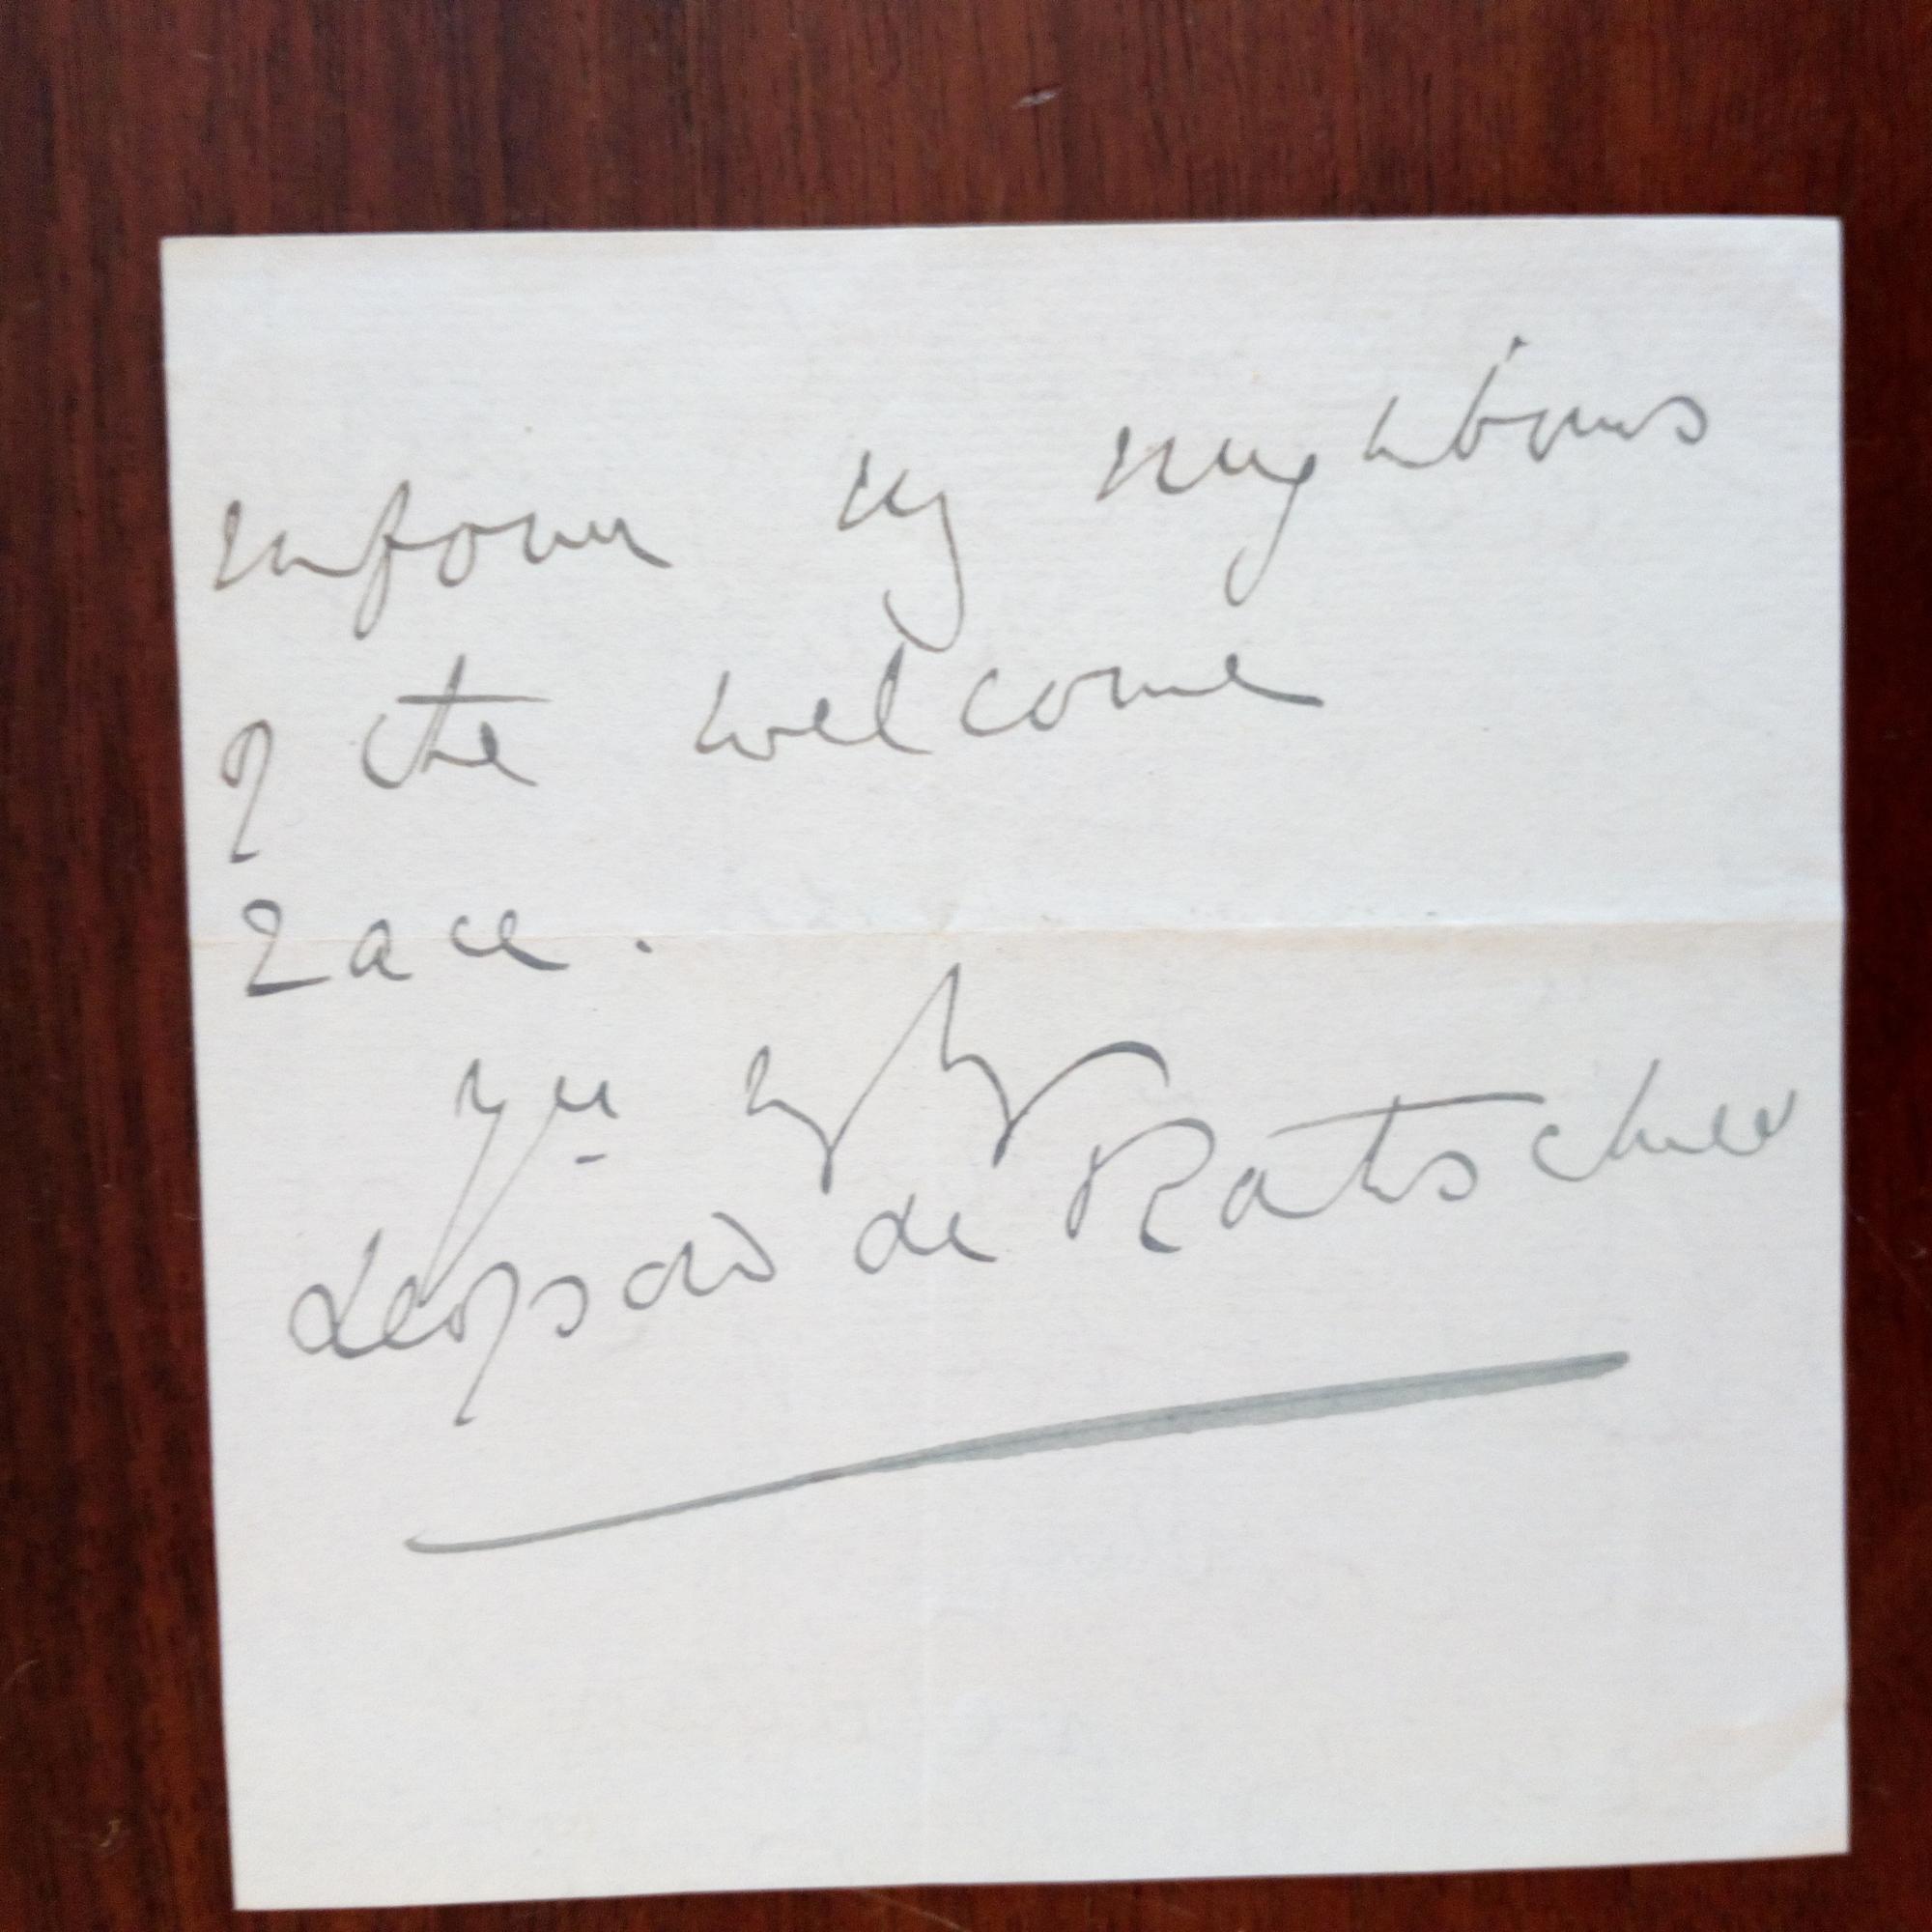 inform my neighbours
of the welcome
race.
Yrs
Leopold de Rothschild